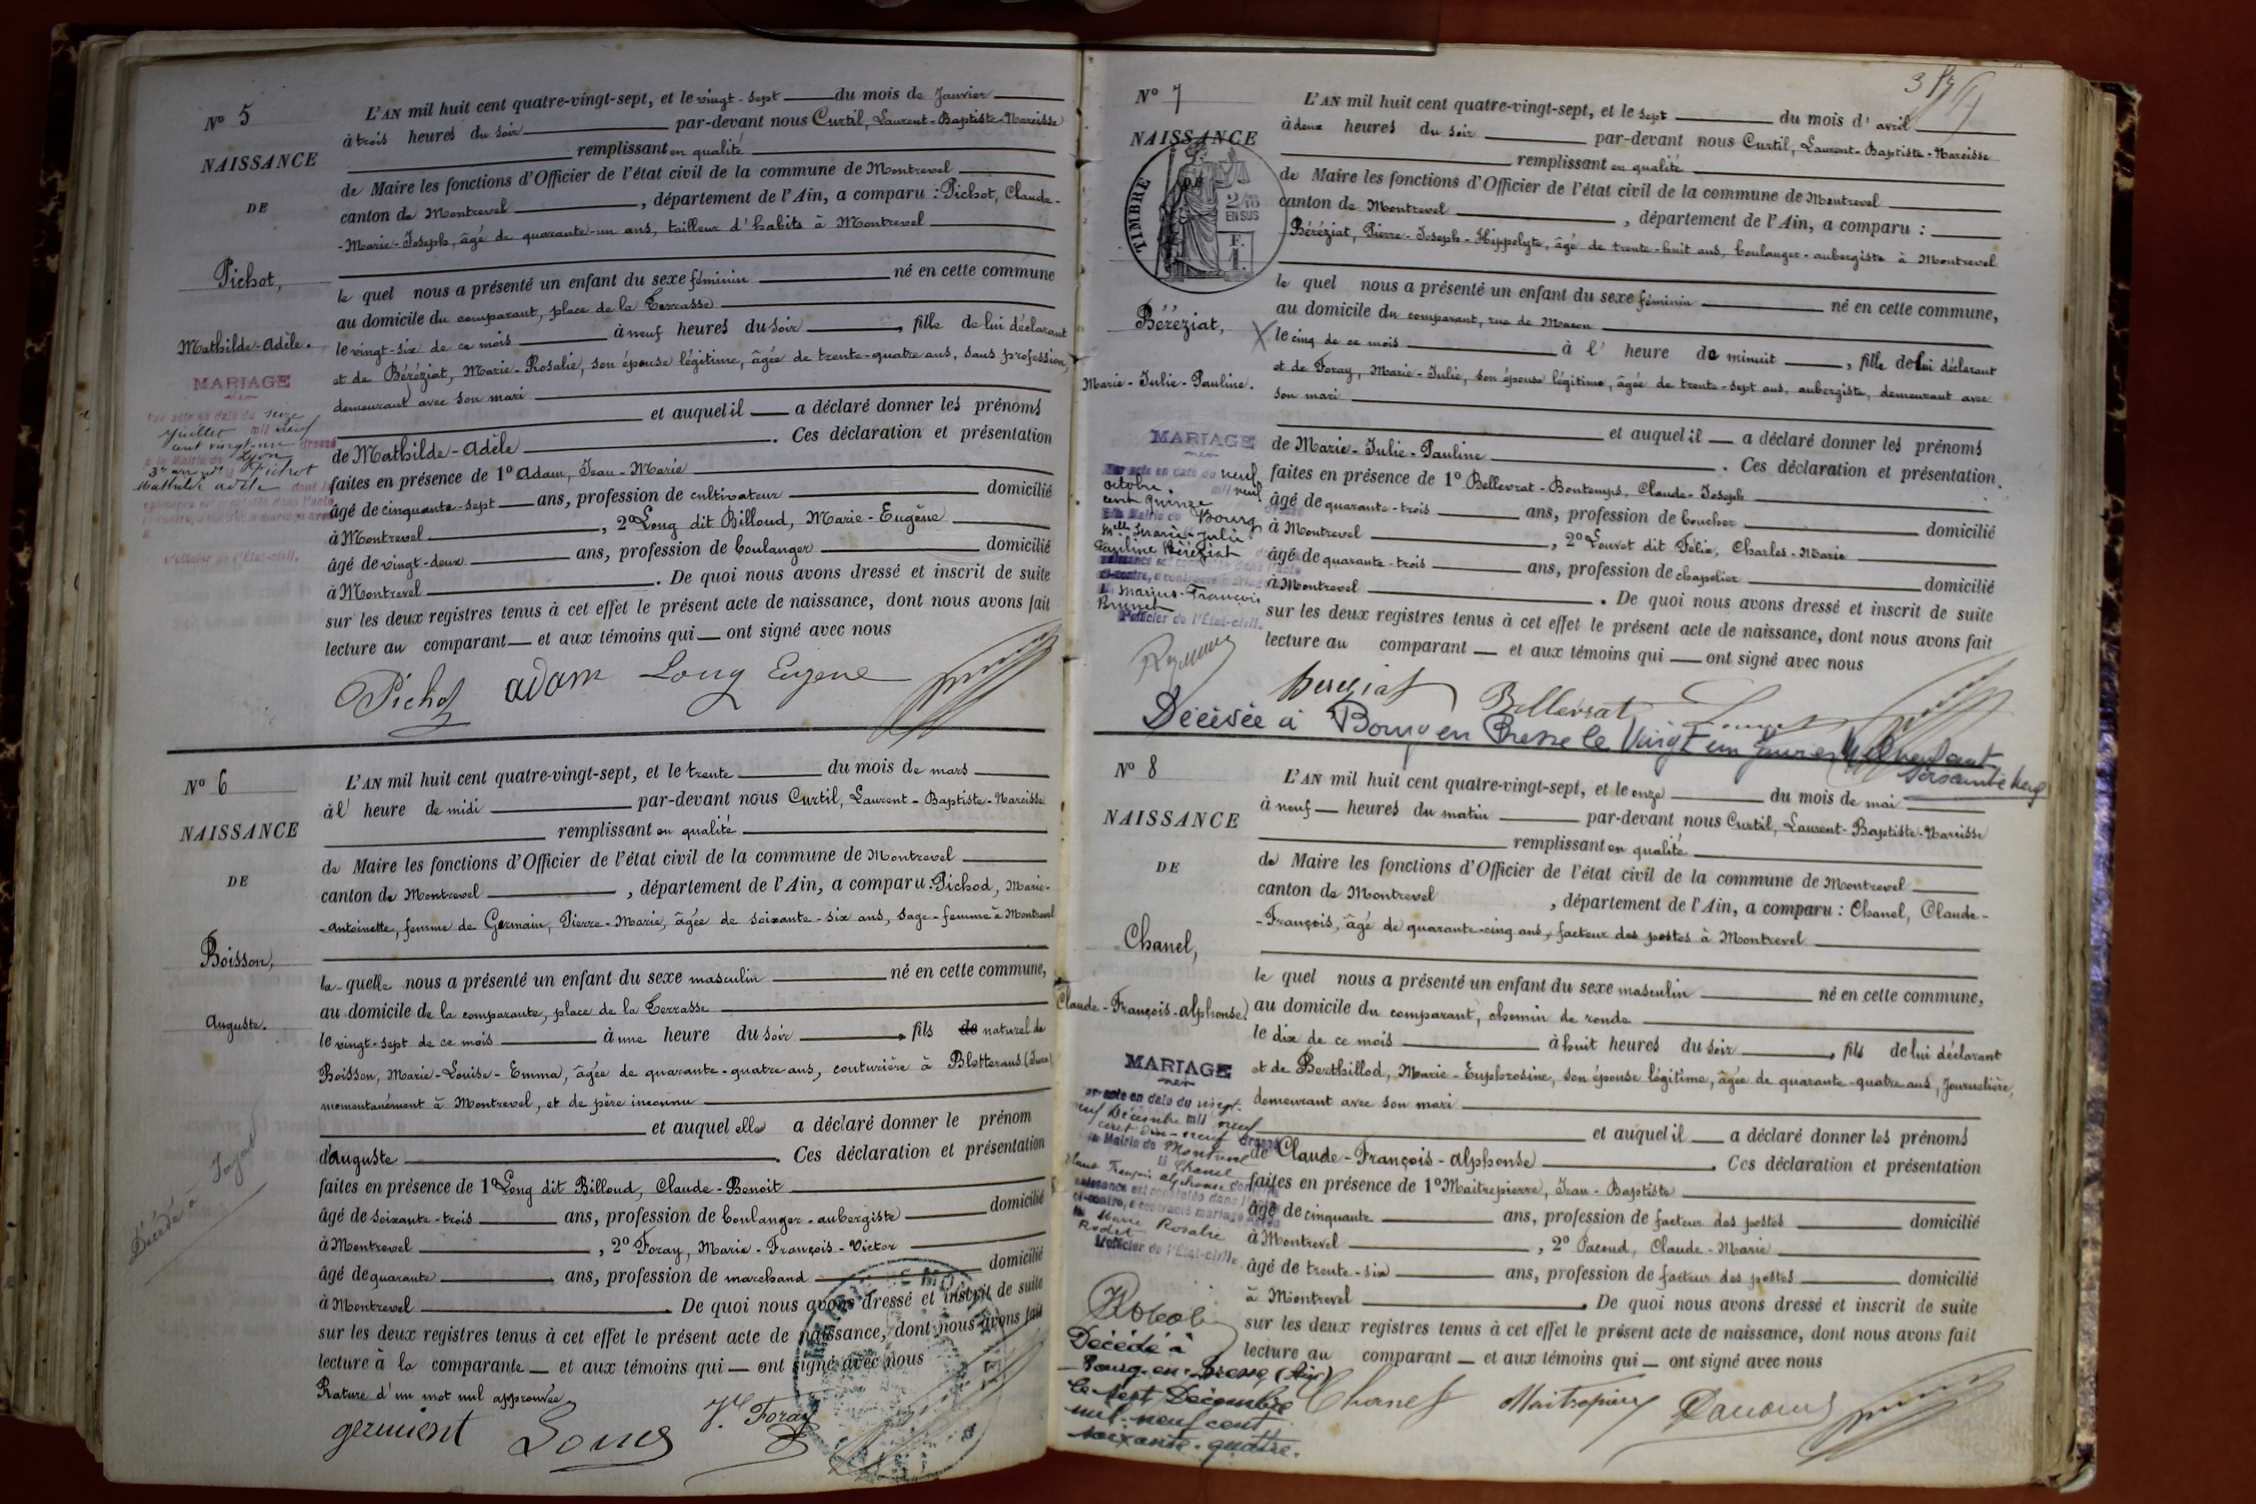 N° 5
NAISSANCE
DE
Pichot,
Mathilde-Adèle.
MARIAGE
seize
juillet mil neuf
cent vingt-un
Lyon
Pichot
Mathilde Adèle
L'AN mil huit cent quatre-vingt-sept, et le vingt-sept du mois de Janvier
à trois heures du soir par-devant nous Curtil, Laurent-Baptiste-Narcisse
remplissant en qualité
de Maire les fonctions d'Officier de l'état civil de la commune de Montrevel
canton de Montrevel , département de l'Ain, a comparu : Pichot, Claude-
-Marie-Joseph, âgé de quarante-un ans, tailleur d'habits à Montrevel
le quel nous a présenté un enfant du sexe féminin né en cette commune
au domicile du comparant, place de la Terrasse
le vingt-six de ce mois à neuf heures du soir , fille de lui déclarant
et de Béréziat, Marie-Rosalie, son épouse légitime, âgée de trente-quatre ans, sans profession,
demeurant avec son mari
et auquel il a déclaré donner les prénoms
de Mathilde-Adèle . Ces déclaration et présentation
faites en présence de 1° Adam, Jean-Marie
âgé de cinquante-sept ans, profession de cultivateur domicilié
à Montrevel , 2° Long dit Billoud, Marie-Eugène
âgé de vingt-deux ans, profession de boulanger domicilié
à Montrevel . De quoi nous avons dressé et inscrit de suite
sur les deux registres tenus à cet effet le présent acte de naissance, dont nous avons fait
lecture au comparant et aux témoins qui ont signé avec nous
Pichot adam Long Eugene
N° 6
NAISSANCE
DE
Boisson,
Auguste.
Décédé à
L'AN mil huit cent quatre-vingt-sept, et le trente du mois de mars
à l' heure de midi par-devant nous Curtil, Laurent-Baptiste-Narcisse
remplissant en qualité
de Maire les fonctions d'Officier de l'état civil de la commune de Montrevel
canton de Montrevel , département de l'Ain, a comparu : Pichod, Marie-
-Antoinette, femme de Germain, Pierre-Marie, âgée de soixante-six ans, sage-femme à Montrevel
la-quelle nous a présenté un enfant du sexe masculin né en cette commune,
au domicile de la comparante, place de la Terrasse
le vingt-sept de ce mois à une heure du soir , fils de naturel de
Boisson, Marie-Louise-Emma, âgée de quarante-quatre ans, couturière à Bletterans (Jura)
momentanément à Montrevel, et de père inconnu
et auquel elle a déclaré donner le prénom
d'Auguste . Ces déclaration et présentation
faites en présence de 1° Long dit Billoud, Claude-Benoit
âgé de soixante-trois ans, profession de boulanger-aubergiste domicilié
à Montrevel , 2° Foray, Marie-François-Victor
âgé de quarante ans, profession de marchand domicilié
à Montrevel . De quoi nous avons dressé et inscrit de suite
sur les deux registres tenus à cet effet le présent acte de naissance, dont nous avons fait
lecture à la comparante et aux témoins qui ont signé avec nous
Rature d'un mot nul approuvée
Long Foray
3
N° 7
NAISSANCE
TIMBRE
2/10
EN SUS
F.
1.
Béréziat,
Marie-Julie-Pauline.
MARIAGE
Par acte en date du neuf
octobre mil neuf
cent quinze
Bourg
Melle Marie-Julie
Pauline Béréziat
Marius-François
Brunet
L'Officier de l'État-civil.
L'AN mil huit cent quatre-vingt-sept, et le sept du mois d'avril
à deux heures du soir par-devant nous Curtil, Laurent-Baptiste-Narcisse
remplissant en qualité
de Maire les fonctions d'Officier de l'état civil de la commune de Montrevel
canton de Montrevel , département de l'Ain, a comparu :
Béréziat, Pierre-Joseph-Hippolyte, âgé de trente-huit ans, boulanger-aubergiste à Montrevel
le quel nous a présenté un enfant du sexe féminin né en cette commune,
au domicile du comparant, rue de Macon
le cinq de ce mois à l' heure de minuit , fille de lui déclarant
et de Foray, Marie-Julie, son épouse légitime, âgée de trente-sept ans, aubergiste, demeurant avec
son mari
et auquel il a déclaré donner les prénoms
de Marie-Julie-Pauline . Ces déclaration et présentation
faites en présence de 1° Bellevrat-Bontemps, Claude-Joseph
âgé de quarante-trois ans, profession de boucher domicilié
à Montrevel , 2° Louvet dit Félix, Charles-Marie
âgé de quarante-trois ans, profession de chapelier domicilié
à Montrevel . De quoi nous avons dressé et inscrit de suite
sur les deux registres tenus à cet effet le présent acte de naissance, dont nous avons fait
lecture au comparant et aux témoins qui ont signé avec nous
Bereziat Bellevrat Louvet
Décédée à Bourg en Bresse le Vingt un Janvier Mil neuf cent
soixante neuf
N° 8
NAISSANCE
DE
Chanel,
Claude-François-Alphonse.
MARIAGE
Par acte en date du vingt-
neuf Décembre mil neuf
cent dix-neuf dressé
à la Mairie de Montrevel
Chanel
Claude François Alphonse
naissance est constatée dans l'acte
ci-contre, a contracté mariage avec
Marie Rosalie
Rodet
L'Officier de l'État-civil.
Décédé à
Bourg-en-Bresse (Ain)
le sept Décembre
mil-neuf cent
soixante-quatre.
L'AN mil huit cent quatre-vingt-sept, et le onze du mois de mai
à neuf heures du matin par-devant nous Curtil, Laurent-Baptiste-Narcisse
remplissant en qualité
de Maire les fonctions d'Officier de l'état civil de la commune de Montrevel
canton de Montrevel , département de l'Ain, a comparu : Chanel, Claude-
-François, âgé de quarante-cinq ans, facteur des postes à Montrevel
le quel nous a présenté un enfant du sexe masculin né en cette commune,
au domicile du comparant, chemin de ronde
le dix de ce mois à huit heures du soir , fils de lui déclarant
et de Berthillod, Marie-Euphrosine, son épouse légitime, âgée de quarante-quatre ans, journalière,
demeurant avec son mari
et auquel il a déclaré donner les prénoms
de Claude-François-Alphonse . Ces déclaration et présentation
faites en présence de 1° Maitrepierre, Jean-Baptiste
âgé de cinquante ans, profession de facteur des postes domicilié
à Montrevel , 2° Pacoud, Claude-Marie
âgé de trente-six ans, profession de facteur des postes domicilié
à Montrevel . De quoi nous avons dressé et inscrit de suite
sur les deux registres tenus à cet effet le présent acte de naissance, dont nous avons fait
lecture au comparant et aux témoins qui ont signé avec nous
Chanel Maitrepierre Pacoud